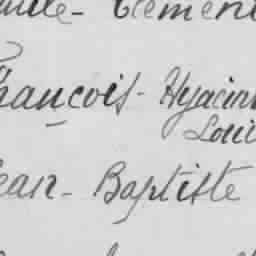 Clément
François - Hyacin
Loui
Jean - Baptiste